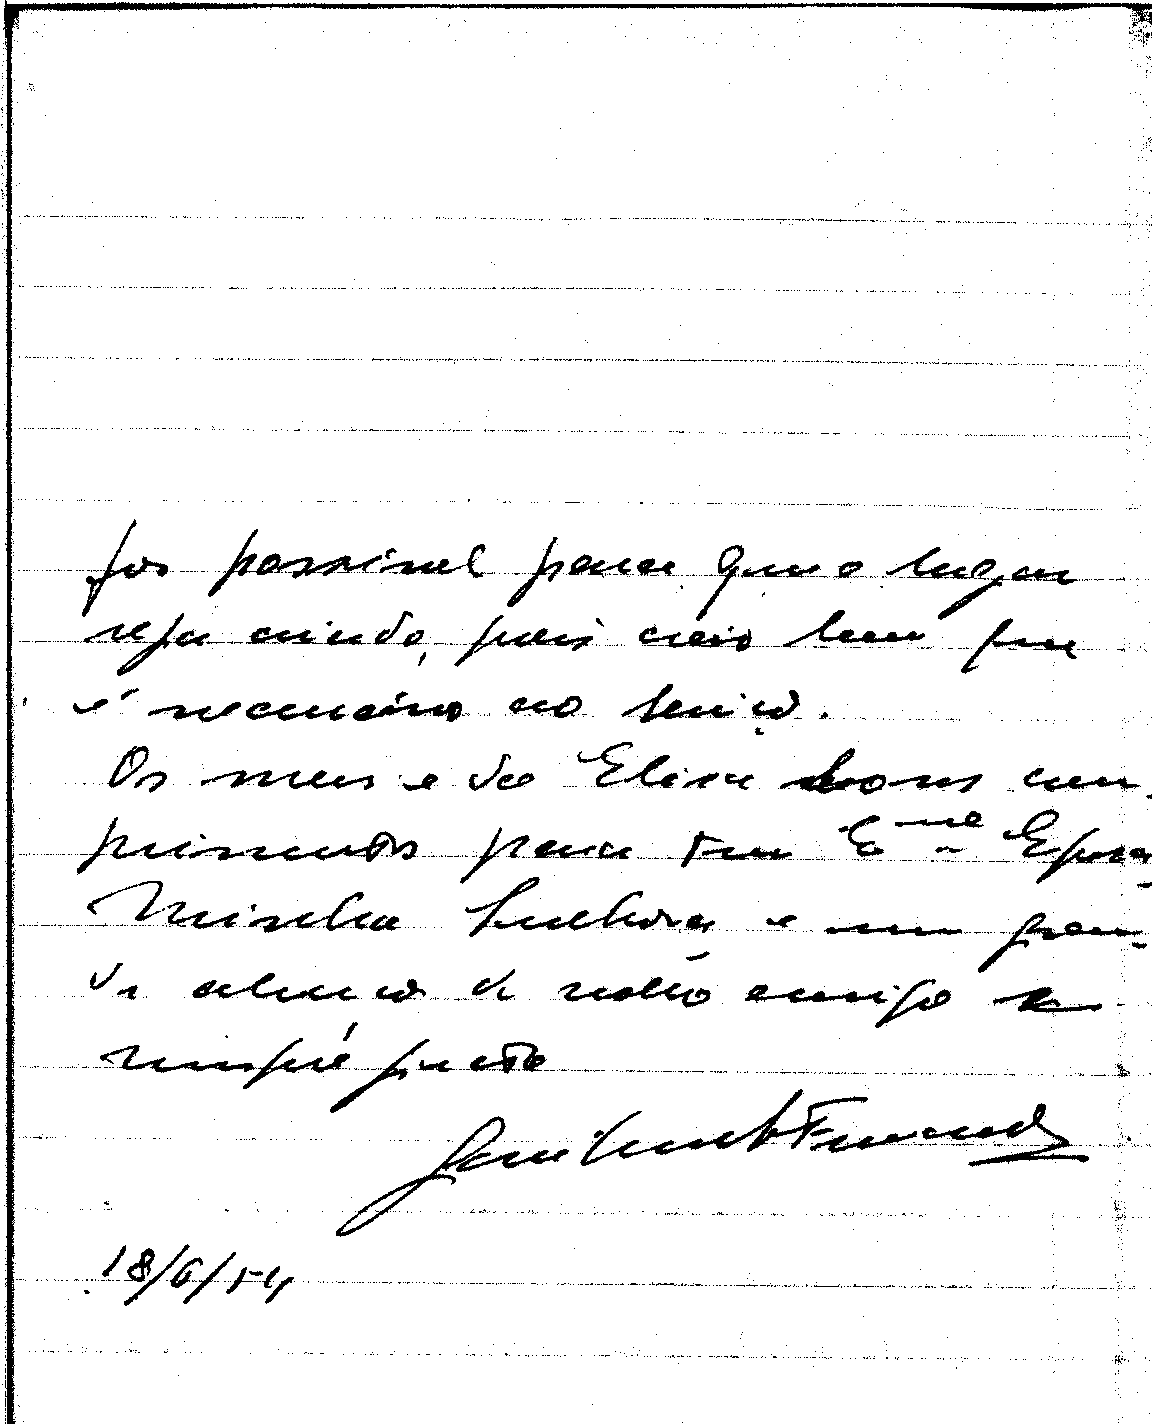 for possivel para que o lugar
seja criado, pois creio bem que
é necessário ao serviço.
Os meus e da Elisa bons cum-
primentos para sua Ex.ma Esposa
Minha Senhora e um gran-
de abraço do velho amigo e
sempre grato
Fernandes
18/6/54